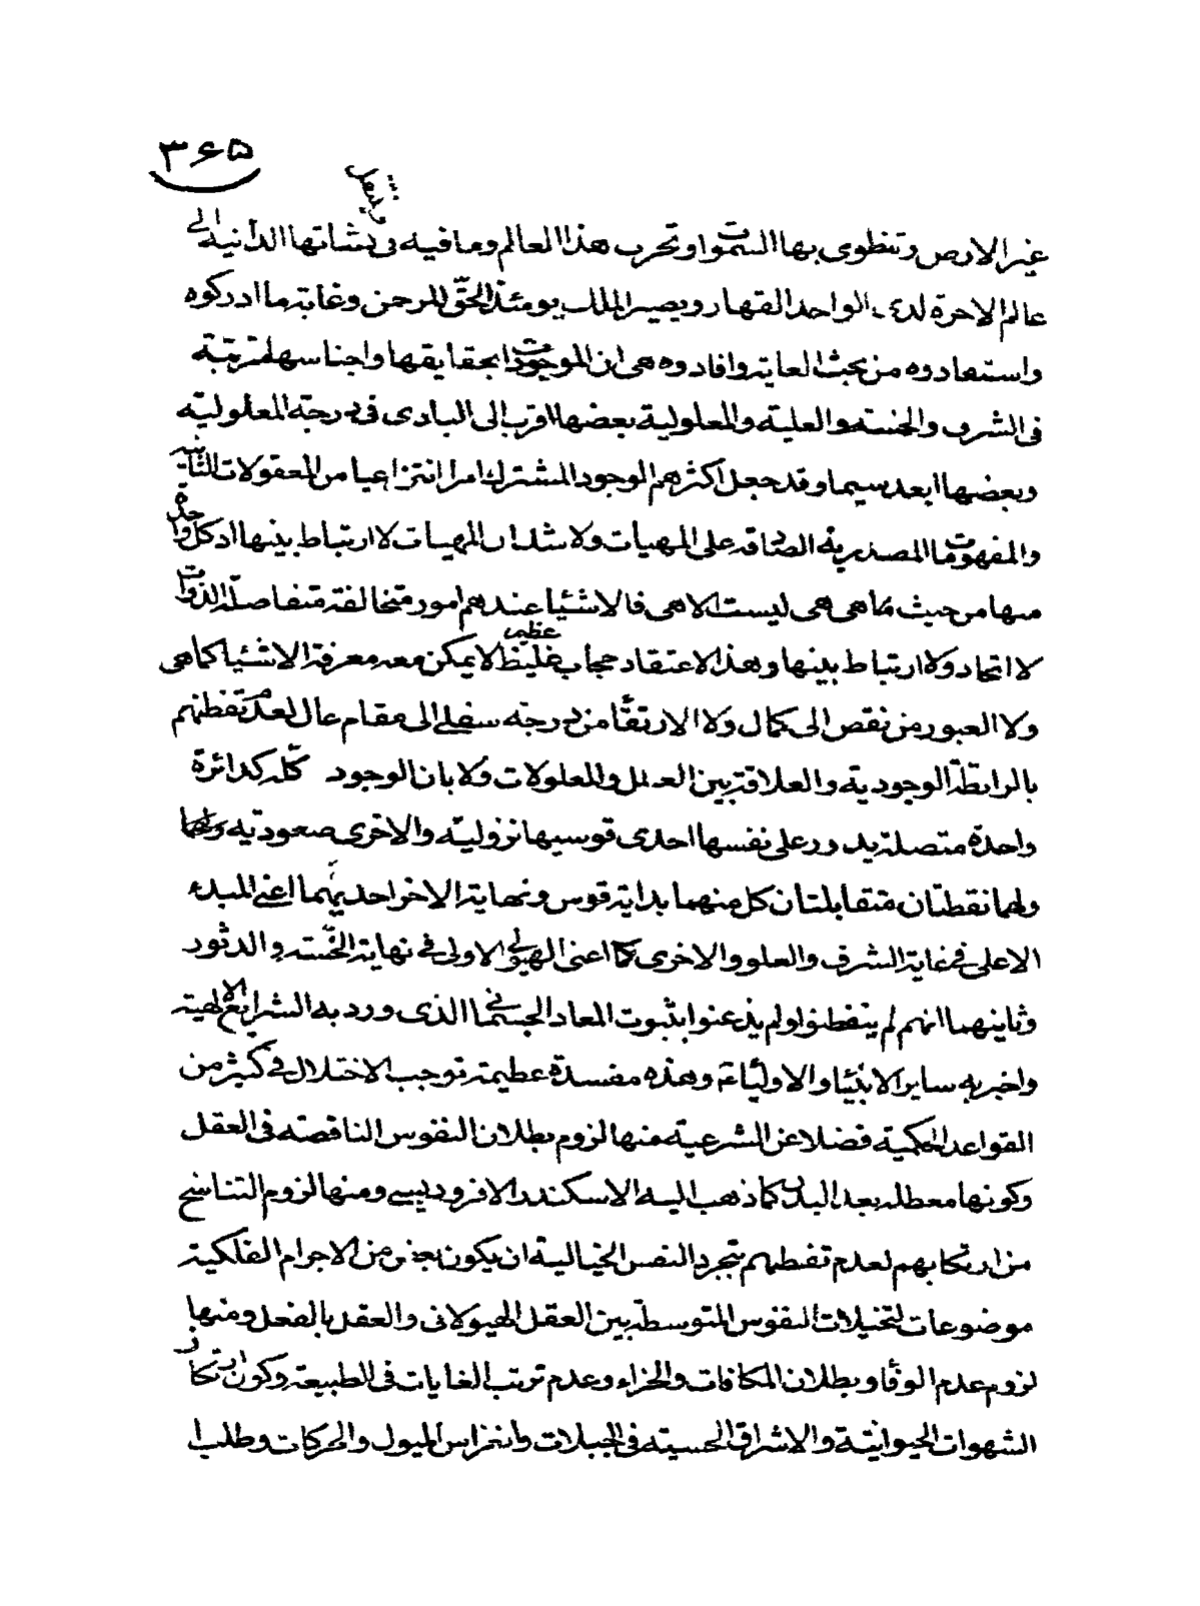 ۳۶۵
و ینتقل
غیر الارض و تنطوی بها السموات و تخرب هذا العالم و ما فیه فی نشاتها الدانیة الی
عالم الاخرة لدی الواحد القهار و یصیر الملک یومئذ الحق للرحمن و غایة ما ادرکوه
و استفادوه من بحث الغایة و افادوه هی ان الموجودات بحقایقها و اجناسها مترتبة
فی الشرف و الخسة و العلیة و المعلولیة بعضها اقرب الی البادی فی درجة المعلولیة
و بعضها ابعد سیما و قد جعل اکثرهم الوجود المشترک امرا انتزاعیا من المعقولات الثانیة
و المفهومات المصدریة الصادقة علی المهیات و لا شک ان المهیات لا ارتباط بینها اذ کل واحدة
منها من حیث ما هی هی لیست الا هی فالاشیا عندهم امور متخالفة متفاصلة الذوات
لا اتحاد و لا ارتباط بینها و هذا الاعتقاد حجاب غلیظ عظیم لا یمکن معه معرفة الاشیا کما هی
و لا العبور من نقص الی کمال و لا الارتقاء من درجة سفلی الی مقام عال لعدم تفطنهم
بالرابطة الوجودیة و العلاقة بین العلل و المعلولات و لا بان الوجود کله کدائرة
واحدة متصلة یدور علی نفسها احدی قوسیها نزولیة و الاخری صعودیة و لهما
و لهما نقطتان متقابلتان کل منهما بدایة قوس و نهایة الاخر احدیهما اعنی المبدء
الاعلی فی غایة الشرف و العلو و الاخری کما اعنی الهیولی الاولی فی نهایة الخسة و الدثور
و ثانیهما انهم لم یتفطنوا و لم یذعنوا بثبوت المعاد الجسمانی الذی ورد به الشرایع الالهیة
و اخبر به سایر الانبیا و الاولیاء و هذه مفسدة عظیمة توجب الاختلال فی کثیر من
القواعد الحکمیة فضلا عن الشرعیة منها لزوم بطلان النفوس الناقصة فی العقل
و کونها معطلة بعد البدن کما ذهب الیه الاسکندر الافرودیسی و منها لزوم التناسخ
من ارتکابهم لعدم تفطنهم بتجرد النفس الخیالیة ان یکون بعض من الاجرام الفلکیة
موضوعات لتخیلات النفوس المتوسطة بین العقل الهیولانی و العقل بالفعل و منها
لزوم عدم الوفا و بطلان المکافات و الجزاء و عدم ترتب الغایات فی الطبیعة و کون ارتکاز
الشهوات الحیوانیة و الاشراق الحسیة فی الجبلات و انغراس المیول و الحرکات و طلب